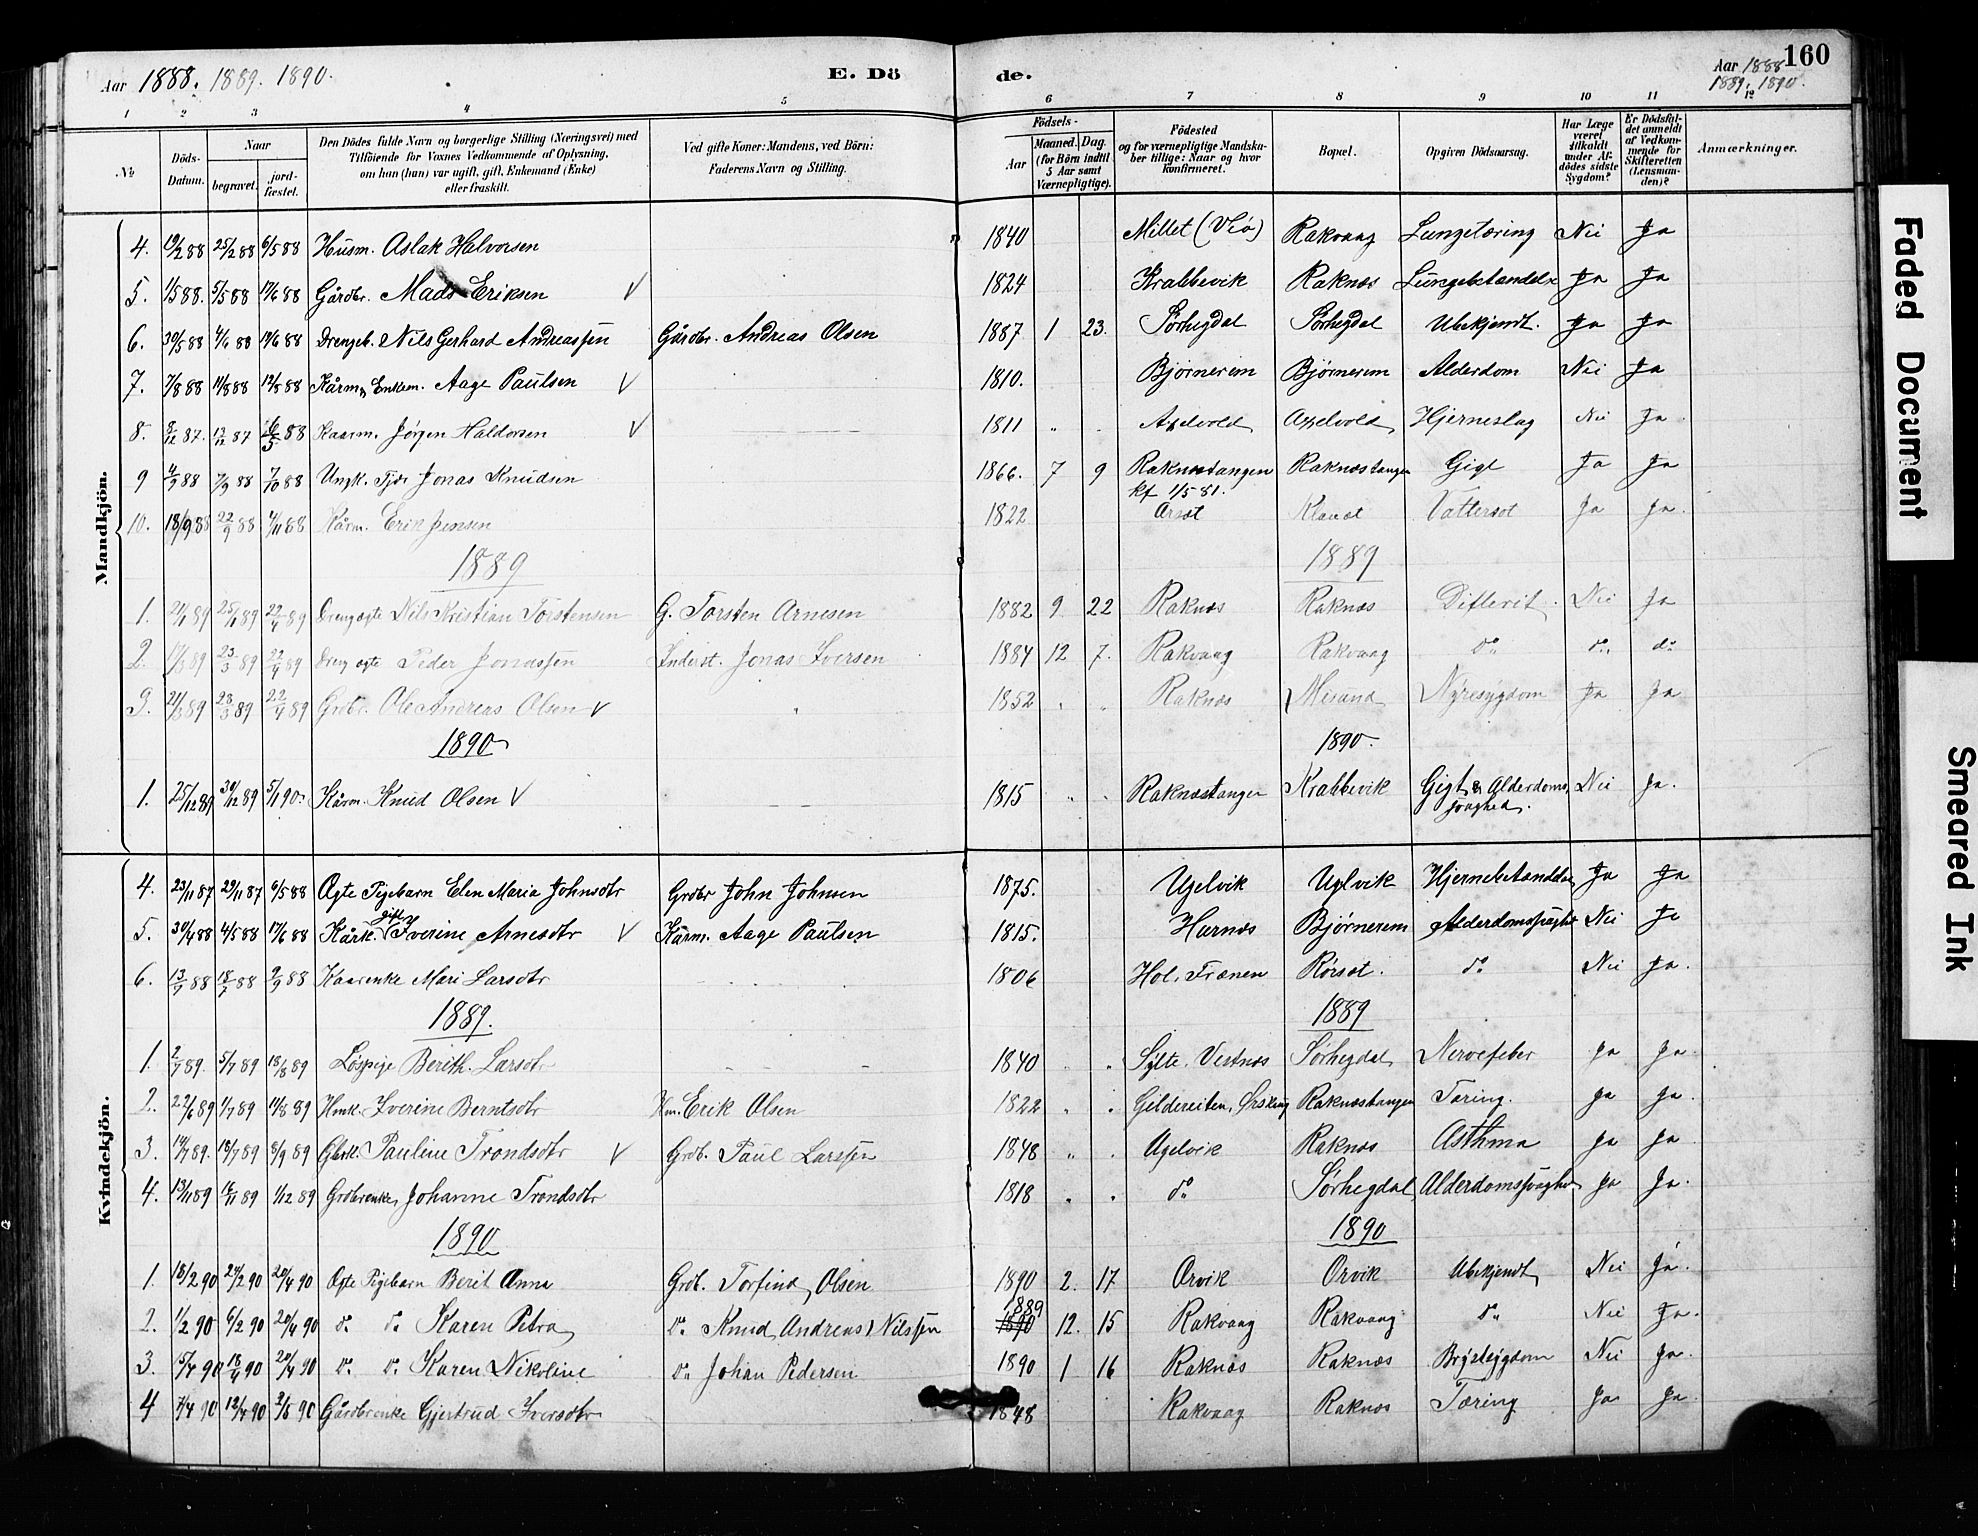 Aar 1888. 1889. 1890. E. Dö de. Aar 1888 160
1889. 1890.
1 2 3 4 5 6 7 8 9 10 11 12
№ Döds-Datum. Naar begravet. jord-fæstet. Den Dödes fulde Navn og borgerlige Stilling (Næringsvei) med Tilföiende for Voxnes Vedkommende af Oplysning, om han (hun) var ugift, gift, Enkemand (Enke) eller fraskilt. Ved gifte Koner: Mandens, ved Börn: Faderens Navn og Stilling. Födsels- Aar Maaned. Dag. (for Börn indtil 5 Aar samt Værnepligtige). Födested og for værnepligtige Mandska-ber tillige: Naar og hvor konfirmeret. Bopæl. Opgiven Dödsaarsag. Har Læge været tilkaldt under Af-dödes sidste Sygdom? Er Dödsfal-det anmeldt af Vedkom-mende for Skifteretten (Lensman-den)? Anmærkninger.
Mandkjön.
4. 19/2 88 25/2 88 6/5 88 Husm. Aslak Halvorsen 1840 Millet (Veø) Rakvaag Lungetæring Nei Ja
5. 1/5 88. 5/5 88 17/6 88 Gårdbr. Mads Eriksen V 1824 Krabbevik Raknæs Lungebetændelse Ja Ja
6. 30/5 88 4/6 88 17/6 88 Drengeb. Nils Gerhard Andreassen Gårdbr. Andreas Olsen 1887 1 23. Sørhegdal Sørhegdal Ubekjendt. Ja Ja
7. 7/8 88 11/8 88 12/8 88 Kårm. Enkem. Aage Paulsen V 1810. Bjørnerem Bjørnerem Alderdom Nei Ja
8. 8/12 87. 13/12 87 6/5 88 Kaarm. Jørgen Haldorsen V 1811 " " Axelvold Axelvold Hjerneslag Nei Ja
9 4/9 88 7/9 88 7/10 88 Ungk. Tjær Jonas Knudsen 1866. 7 9 Raknæstangen Raknæstangen Gigt Ja Ja
kf 1/5 81.
10. 18/9 88 22/9 88 4/11 88 Kårm. Erik Jensen 1822 Arsæt Klauset Vattersot Ja Ja.
1889 1889
1. 21/1 89 25/1 89 22/4 89 Dreng ægte Nils Kristian Torstensen G. Torsten Arnesen 1882 9 22 Raknæs Raknæs Difterit. Nei Ja
2. 17/3 89 23/3 89 22/4 89 Dreng ægte Peder Jonassen Inderst. Jonas Iversen 1884 12 7. Rakvaag Rakvaag do do do
3. 21/3 89 23/3 89 22/4 89 Grdbr. Ole Andreas Olsen V " 1852 " " Raknæs Misund Nyresygdom Ja Ja
1890 1890.
1. 25/12 89 30/12 89 5/1 90. Kårm. Knud Olsen V 1815 " " Raknæstangen Krabbevik Gigt & Alderdoms Nei Ja.
svaghed.
Kvindekjön.
4. 23/11 87 29/11 87 6/5 88 Ægte Pigebarn Elen Maria Johnsdtr Grdbr John Johnsen 1875. Ugelvik Uglvik Hjernebetændelse Ja Ja
gift
5. 30/4 88 4/5 88 17/6 88 Kårk. Iverine Arnesdtr V Kårm. Aage Paulsen 1815. Harnæs Bjørnerem Alderdomssvaghed Nei Ja
6. 13/7 88 18/7 88 9/9 88 Kaarenke Mari Larsdtr 1806 Hol, Frænen Rørset. do Nei Ja.
1889. 1889
1. 2/7 89. 5/7 89 18/8 89 Løspige Berith. Larsdtr 1840 " " Sylte. Vestnæs Sørhegdal Nervefeber Ja Ja.
2. 27/6 89 1/7 89 11/8 89 Hmk. Iverine Berntsdtr Hm. Erik Olsen 1822 " " Gildereiten, Ørskoug Raknæstangen Tæring. Ja Ja.
3. 14/7 89. 18/7 89 8/9 89 Gbrk. Pauline Trondsdtr V Grdb. Paul Larssen 1848 " " Ugelvik Raknæs Asthma Ja Ja
4. 13/11 89 16/11 89 1/12 89 Grdbrenke Johanne Trondsdtr 1818 " " do Sørhegdal Alderdomssvaghed Ja Ja.
1890 1890
1. 18/2 90 24/2 90 20/4 90 Ægte Pigebarn Berit Anna Grdb. Torfind Olsen 1890 2. 17 Orvik Orvik Ubekjendt Nei Ja.
1889
2. 1/2 90 6/2 90 20/4 90 do do Karen Petra do Knud Andreas Nilssen 1890 12. 15 Rakvaag Rakvaag do Nei Ja.
3. 15/4 90 18/4 90 20/4 90 do do Karen Nikoline do Johan Pedersen 1890 1 16 Raknæs Raknæs Brystsygdom Nei Ja.
4 7/4 90 12/4 90 2/5 90 Gårdbrenke Gjertrud Iversdtr 1848 Rakvaag Raknæs Tæring Ja Ja.
Faded Document
Smeared Ink